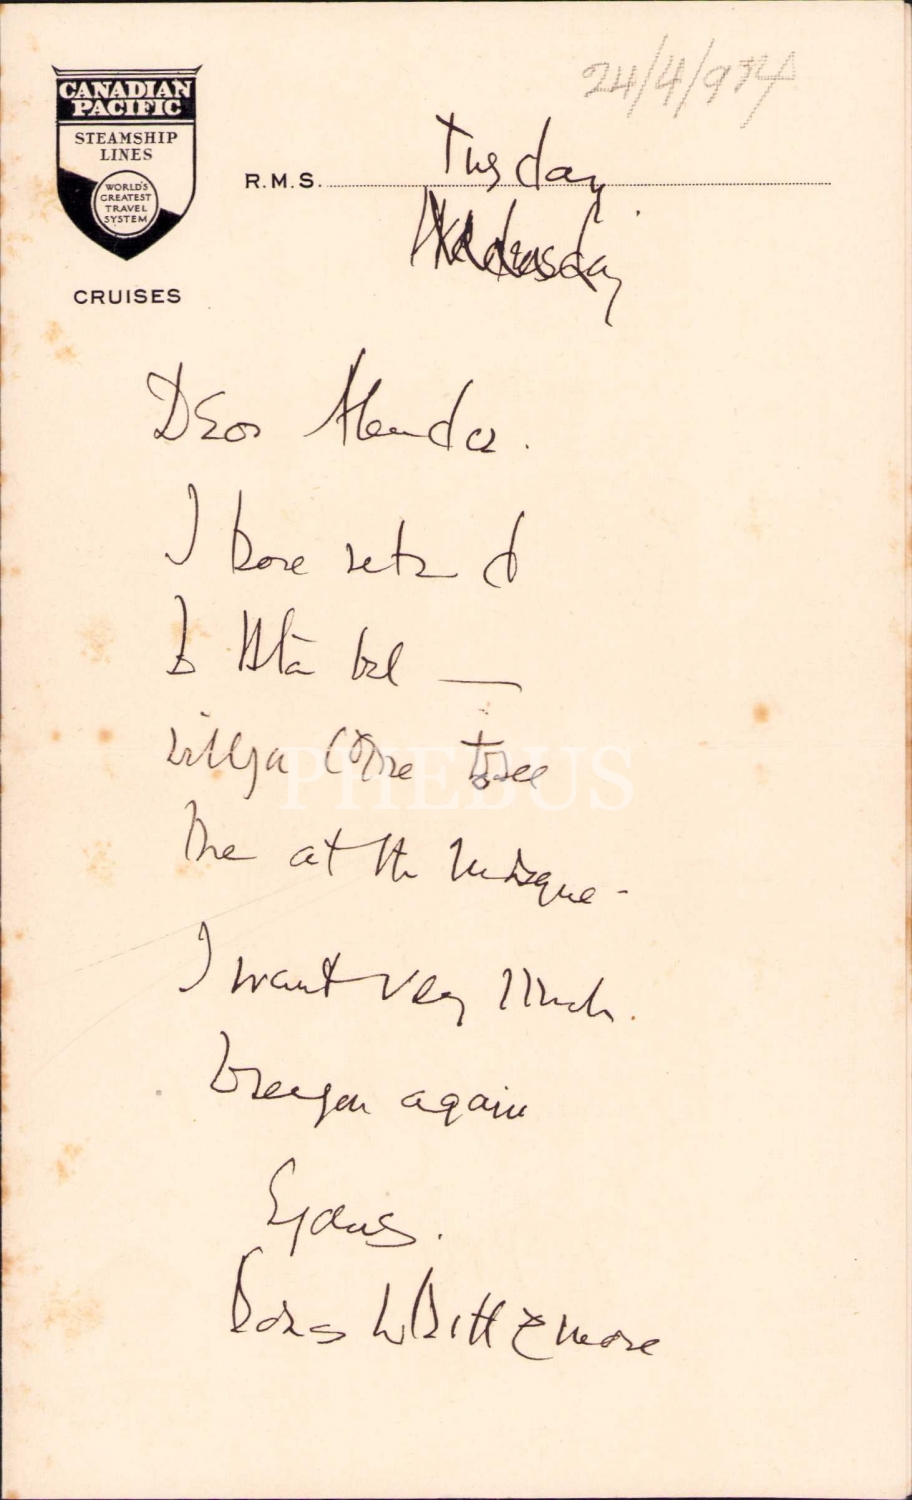 CANADIAN
PACIFIC
STEAMSHIP
LINES
WORLD'S
GREATEST
TRAVEL
SYSTEM
CRUISES
24/4/934
R.M.S. Tuesday
Wednesday
Dear
I have
to bul —
will you come to see
me at the Mosque -
I want very much
to see you again
Yours.
Whittemore
PHEBUS